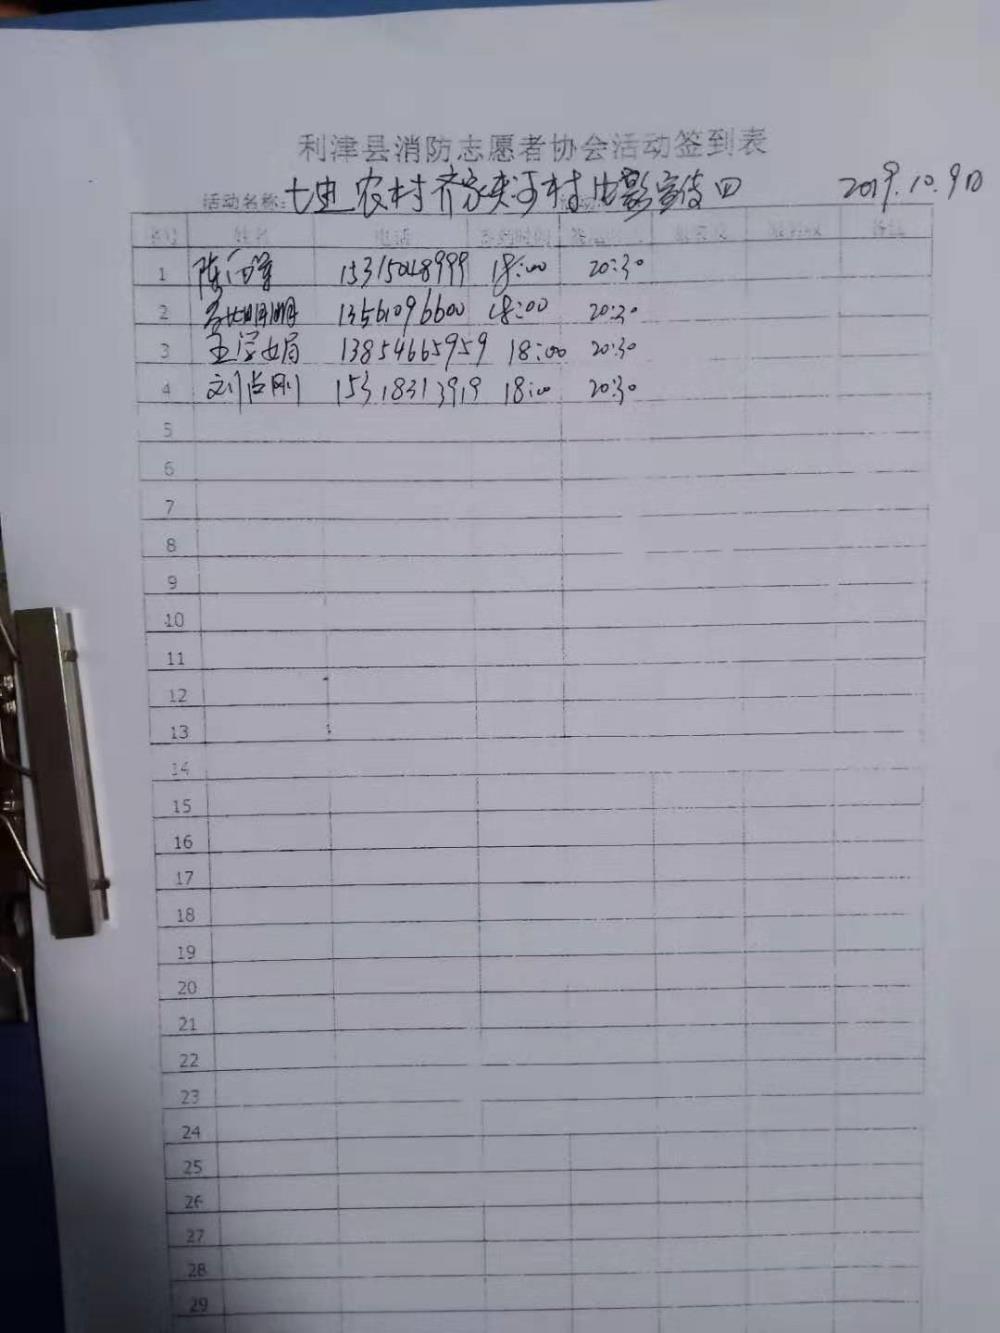 利津县消防志愿者协会活动签到表
活动名称: 七进农村齐家夹河村电影宣传四 2019.10.9日
序号 姓名 电话 签到时间 签退时间 备注
1 陈 15315048999 18:00 20:30
2 明明 13561096600 18:00 20:30
3 王学娟 13854665959 18:00 20:30
4 刘尚刚 15318313919 18:00 20:30
5
6
7
8
9
10
11
12
13
14
15
16
17
18
19
20
21
22
23
24
25
26
27
28
29